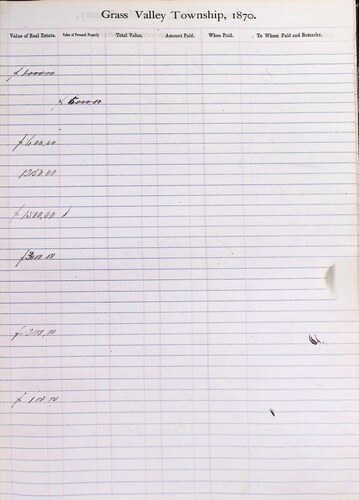 Grass Valley Township, 1870.
Value of Real Estate. Value of Personal Property. Total Value. Amount Paid. When Paid. To Whom Paid and Remarks.
$600.00
1350.00
$300.00
$200.00
$100.00